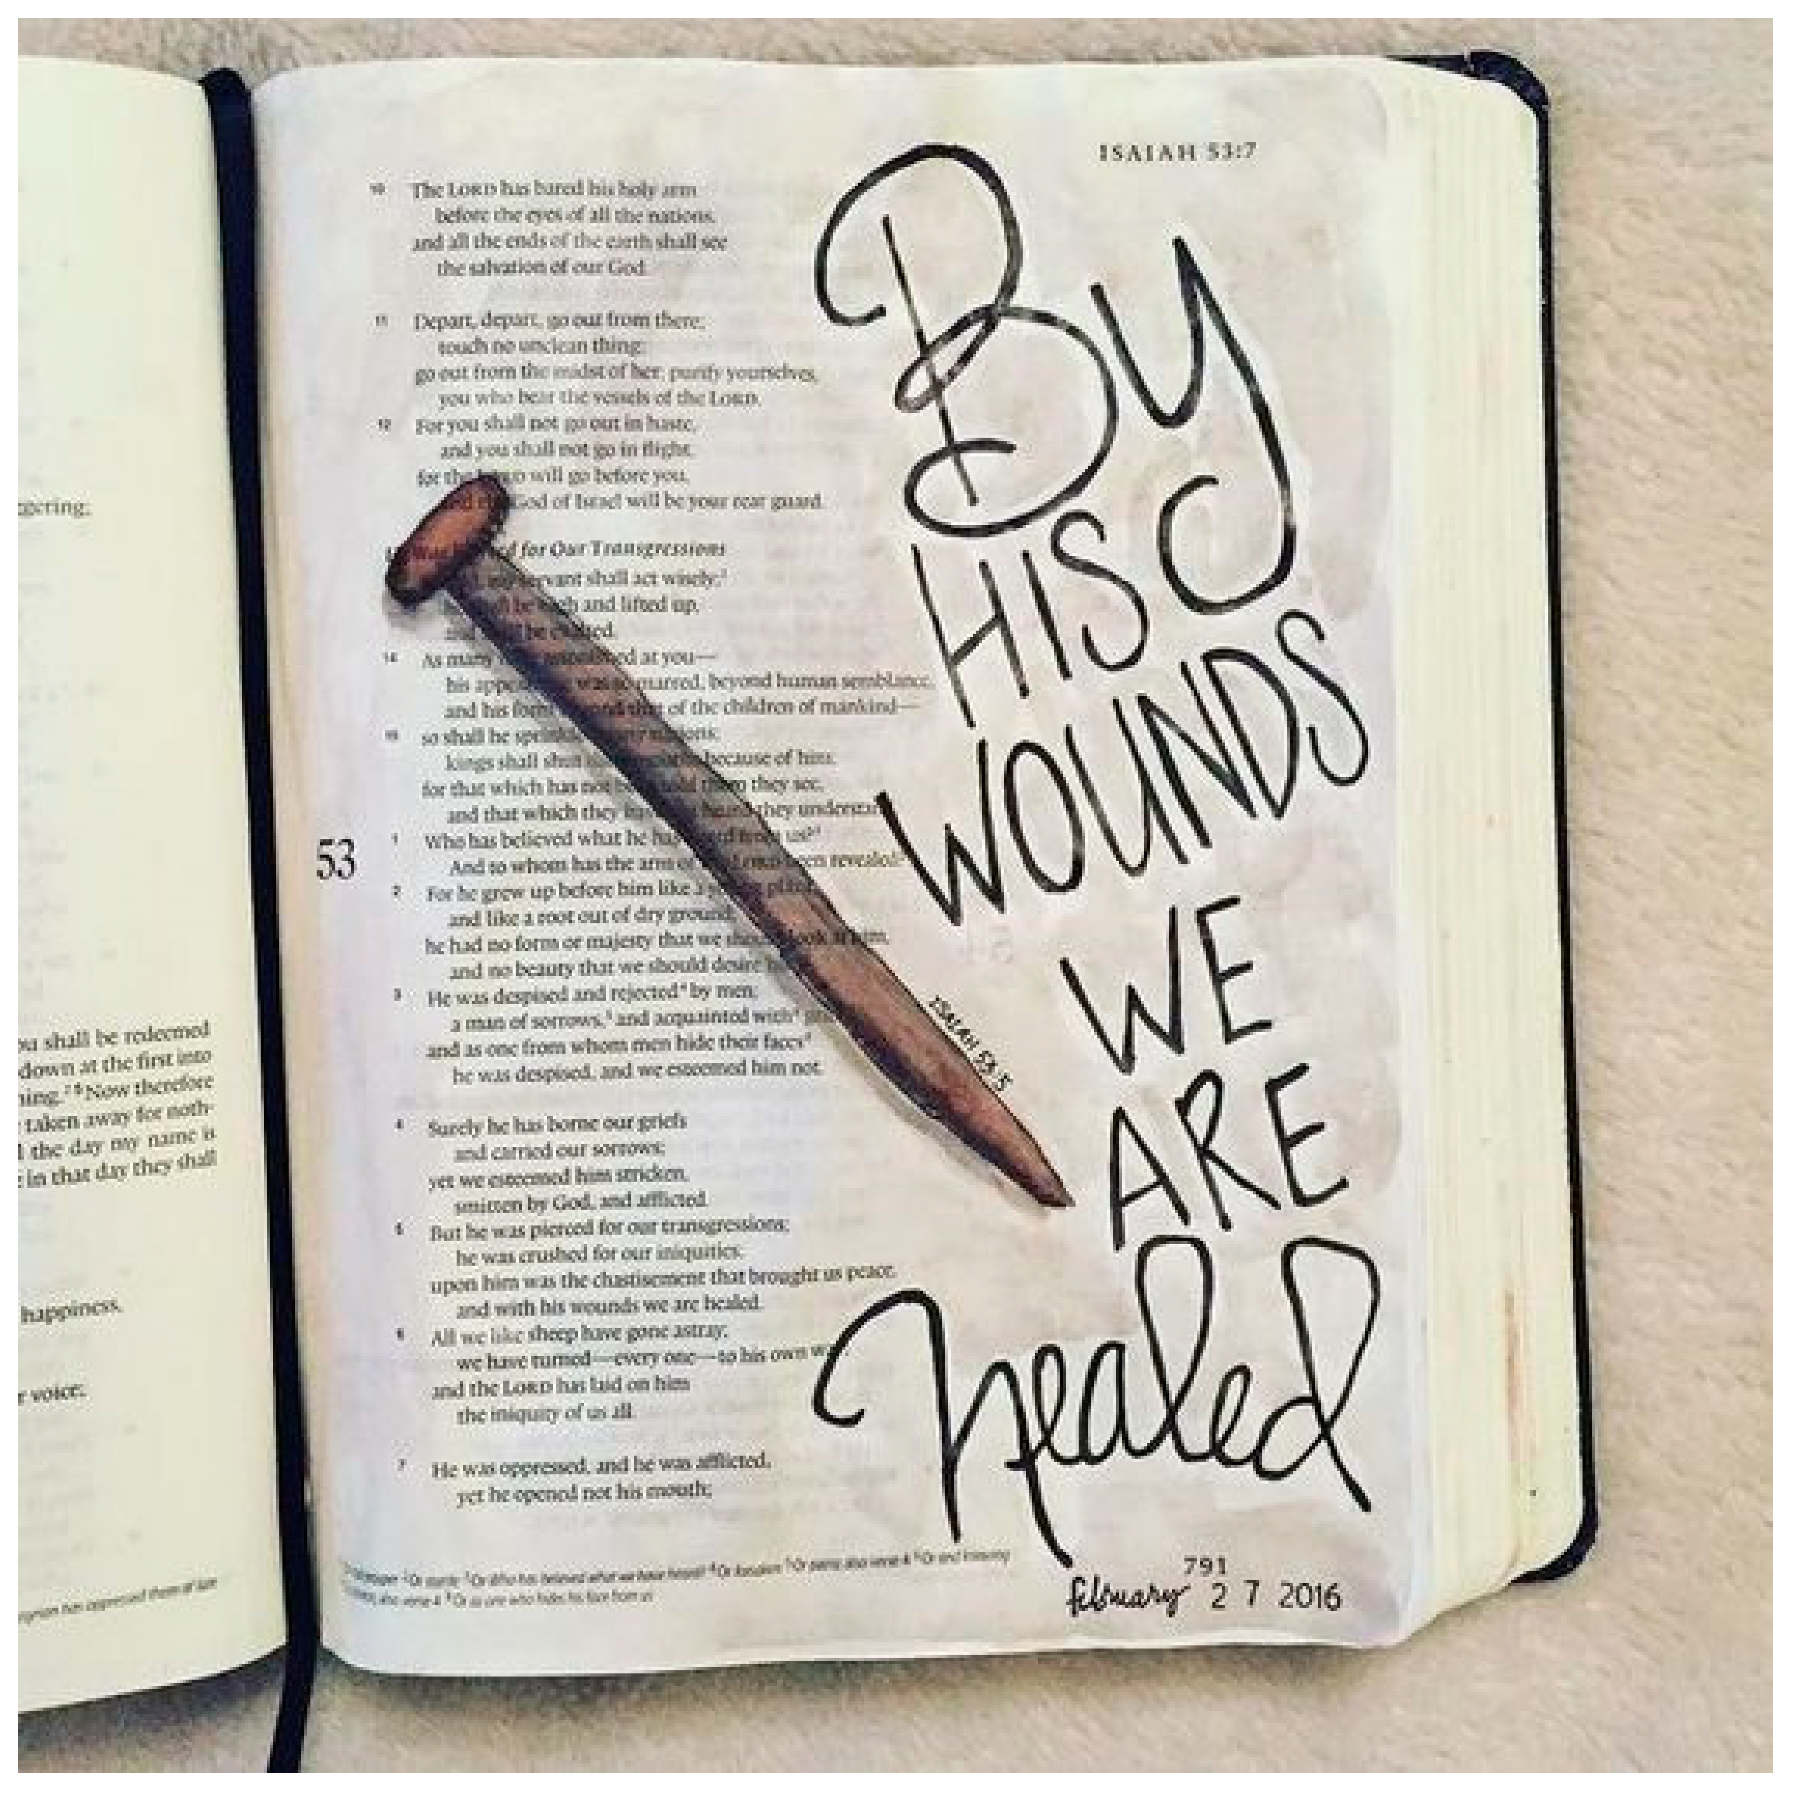 gering;
u shall be redeemed
down at the first into
Now therefore
taken away for noth-
the day my name is
in that day they shall
happiness,
voice;
ISAIAH 53:7
10 The LORD has bared his holy arm
before the eyes of all the nations,
and all the ends of the earth shall see
the salvation of our God.
11 Depart, depart, go out from there;
touch no unclean thing;
go out from the midst of her; purify yourselves,
you who bear the vessels of the LORD.
12 For you shall not go out in haste,
and you shall not go in flight,
for the will go before you,
God of Israel will be your rear guard.
for Our Transgressions
servant shall act wisely;
be high and lifted up,
and be exalted.
14 As many at you—
his appearance was so marred, beyond human semblance,
and his form beyond that of the children of mankind—
15 so shall he sprinkle many nations;
kings shall shut because of him;
for that which has not been told them they see,
and that which they have not heard they understand.
53
1 Who has believed what he has heard from us?
And to whom has the arm of the LORD been revealed?
2 For he grew up before him like a young plant,
and like a root out of dry ground;
he had no form or majesty that we should look at him,
and no beauty that we should desire
3 He was despised and rejected by men;
a man of sorrows, and acquainted with
and as one from whom men hide their faces
he was despised, and we esteemed him not.
4 Surely he has borne our griefs
and carried our sorrows;
yet we esteemed him stricken,
smitten by God, and afflicted.
5 But he was pierced for our transgressions;
he was crushed for our iniquities;
upon him was the chastisement that brought us peace,
and with his wounds we are healed.
6 All we like sheep have gone astray;
we have turned—every one—to his own
and the LORD has laid on him
the iniquity of us all.
7 He was oppressed, and he was afflicted,
yet he opened not his mouth;
By
HIS
WOUNDS
WE
ARE
Healed
ISAIAH 53:5
791
february 27 2016